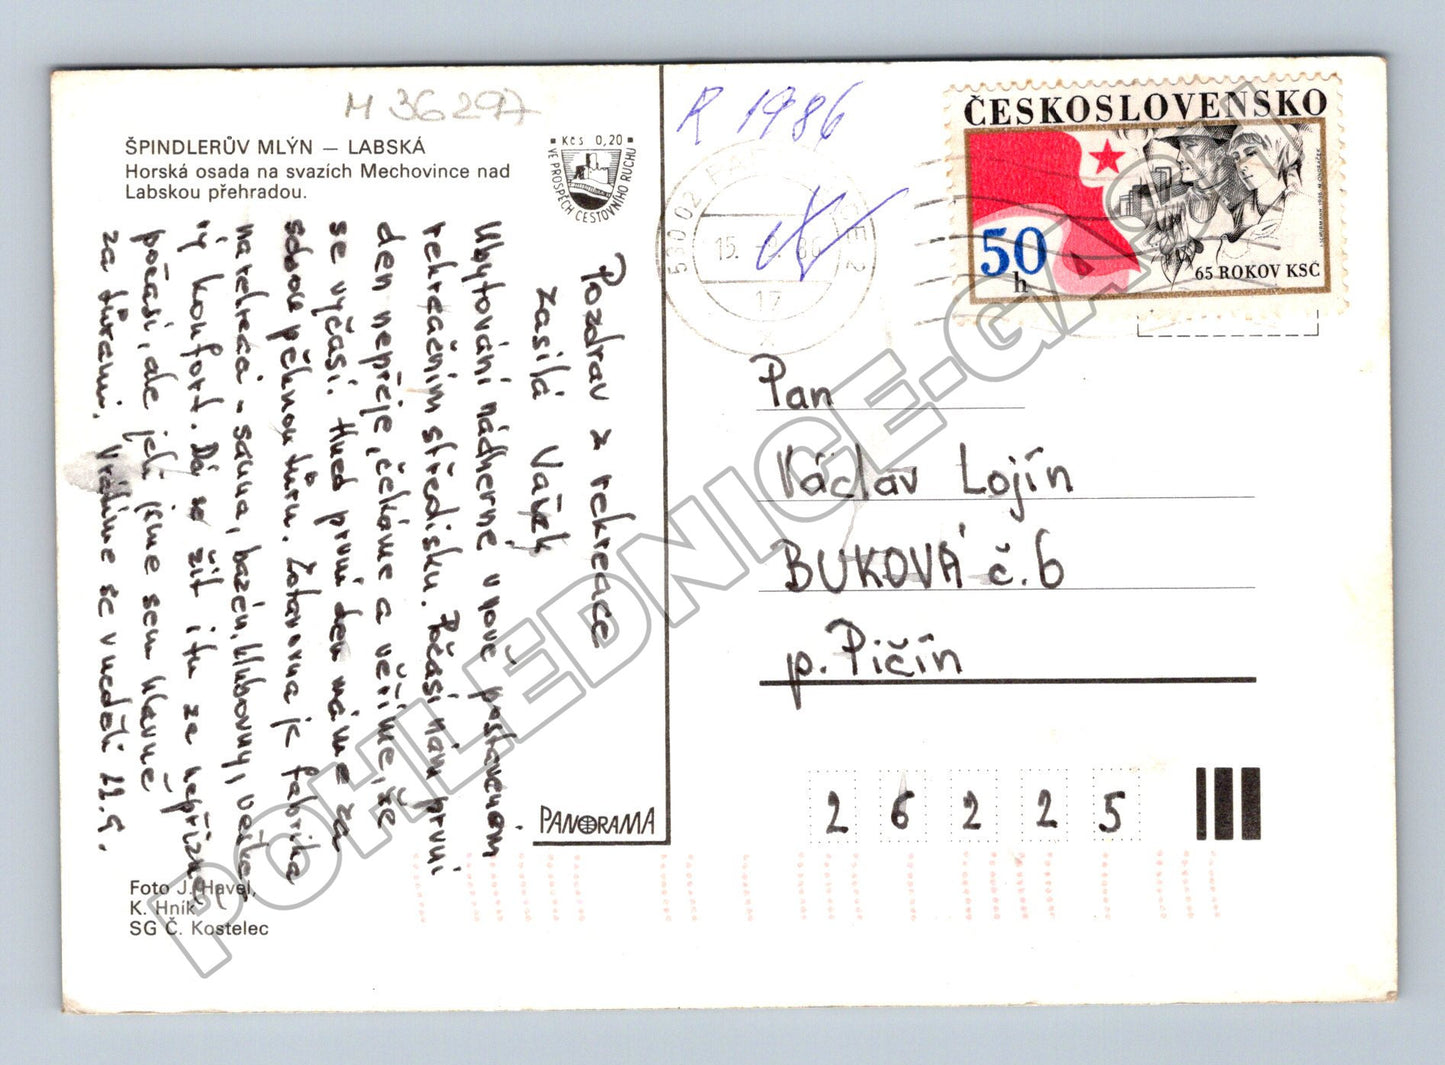 M 36297
ŠPINDLERŮV MLÝN – LABSKÁ
Horská osada na svazích Mechovince nad
Labskou přehradou.
Kčs 0,20
VE PROSPĚCH CESTOVNÍHO RUCHU
R 1986
ČESKOSLOVENSKO
50
h
65 ROKOV KSČ
530 02
15.
86
17
Pozdrav z rekreace
zasílá Vašek
Ubytování nádherné v nově postaveném
rekreačním středisku. Počasí nám první
den nepřeje, čekáme a věříme, že
se vyčasí. Hned první den máme za
sebou pěknou túru. Zotavovna je fabrika
na rekreaci - sauna, bazén, klubovny, veške
rý komfort. Dá se žít i tu za nepřízně
počasí, ale jeli jsme sem hlavně
za túrami. Vrátíme se v neděli
Pan
Václav Lojín
BUKOVÁ č. 6
p. Pičín
26225
PANORAMA
Foto J. Havel,
K. Hník
SG Č. Kostelec
POHLEDNICE-GASH